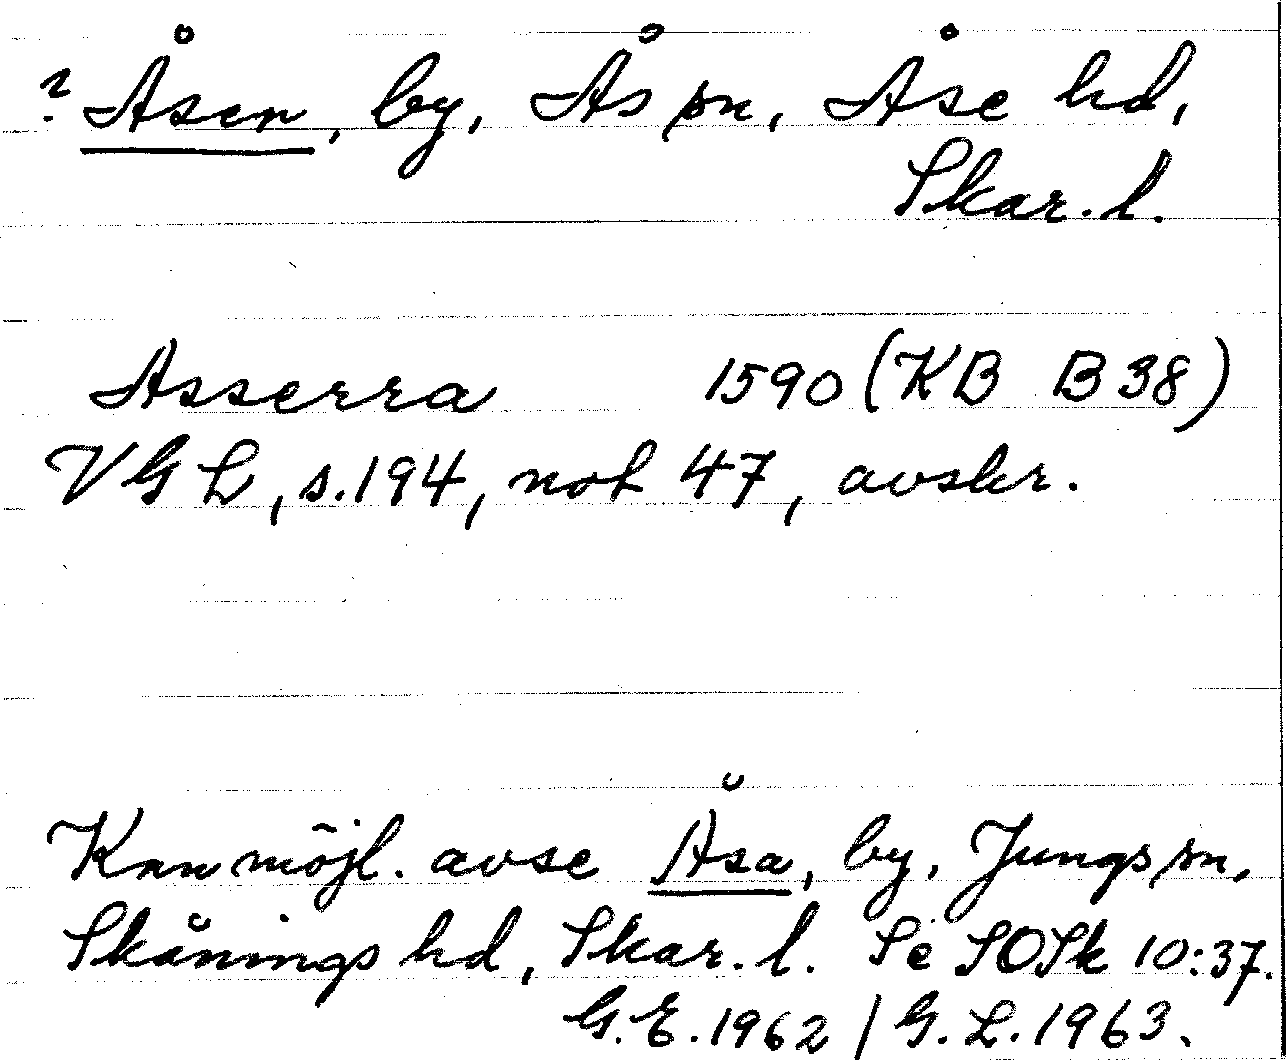 ? Åsen, by, Ås sn, Åse hd,
Skar. l.
Asserra 1590 (KB B 38)
VGL, s. 194, not 47, avskr.
Kan möjl. avse Åsa, by, Jungs sn,
Skånings hd, Skar. l. Se SOSk 10:37.
G.E. 1962 / G.L. 1963.